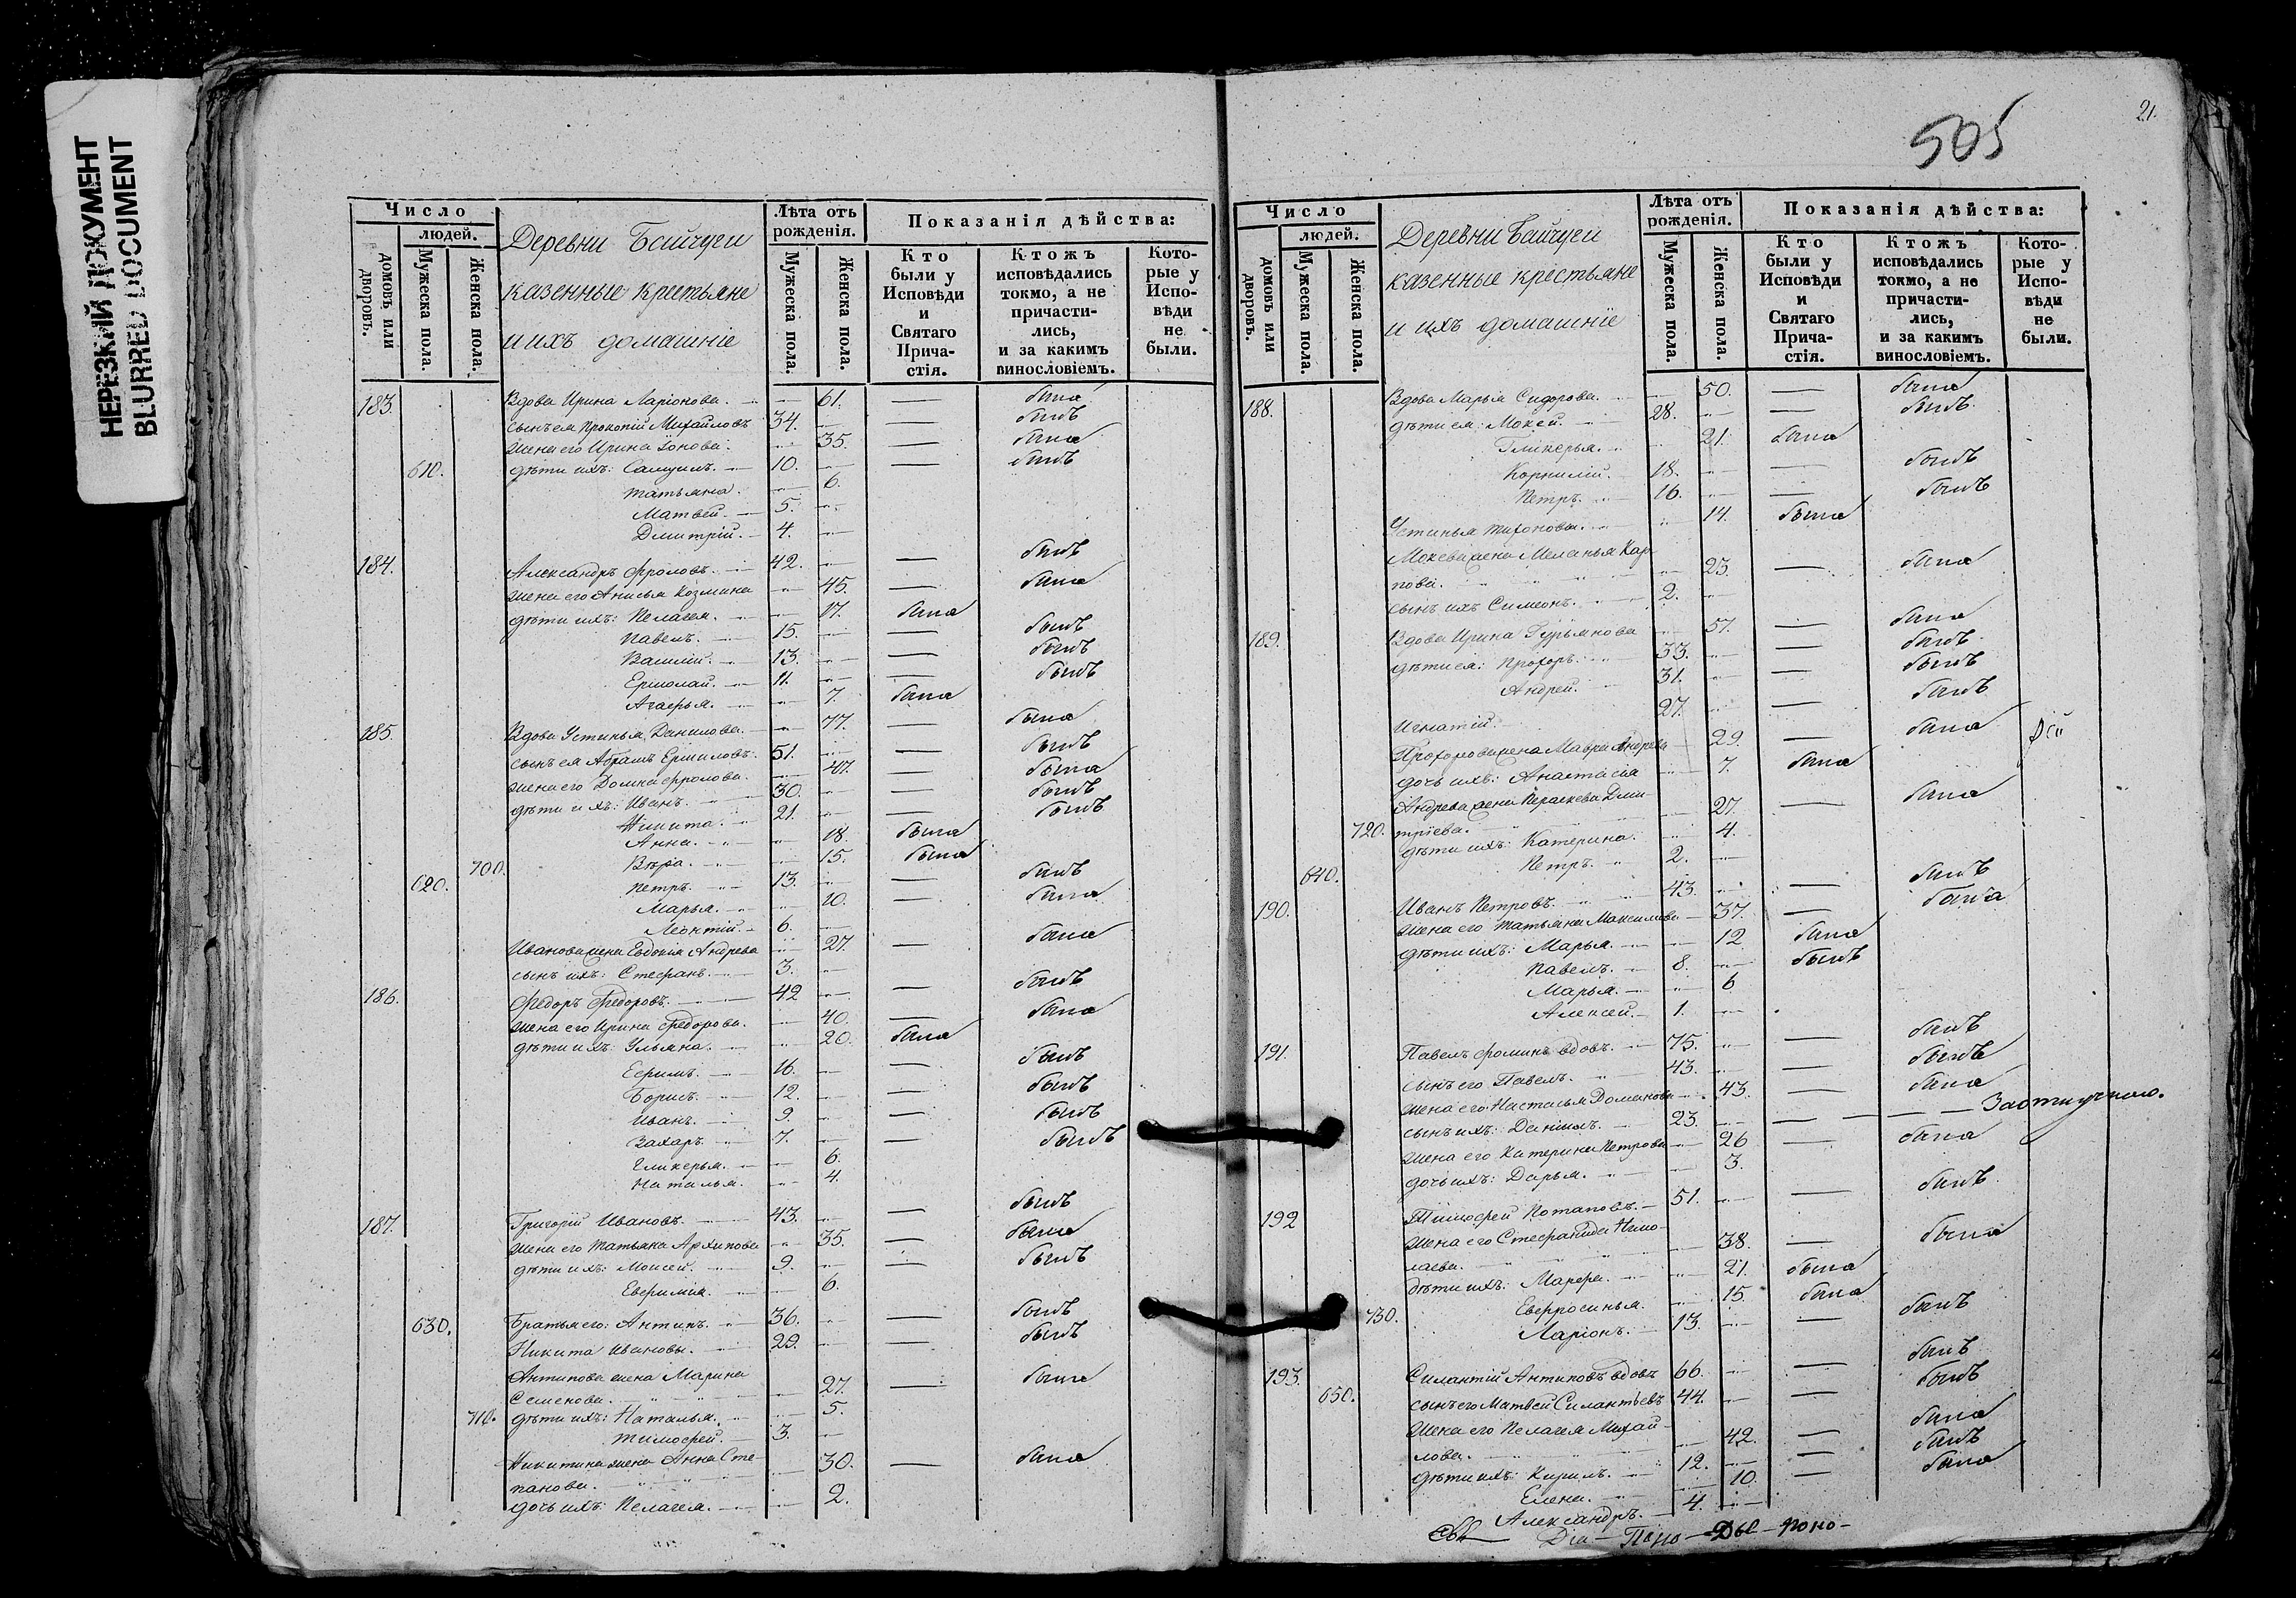 НЕРЕЗКИЙ ДОКУМЕНТ
BLURRED DOCUMENT
Число
людей.
домовъ или дворовъ.
Мужеска пола.
Женска пола.
Деревни Байчуги
казенные крестьяне
и ихъ домашніе
Лѣта отъ рожденія.
Мужеска пола.
Женска пола.
Показанія дѣйства:
Кто были у Исповѣди и Святаго Прича-стія.
Ктожъ исповѣдались токмо, а не причасти-лись, и за какимъ винословіемъ.
Кото-рые у Испо-вѣди не были.
183. Вдова Ирина Ларіонова. 61. — была
сынъ ея Прокопій Михайловъ 34. — былъ
жена его Ирина 35. — была
610. дѣти ихъ: Самуилъ. 10. — былъ
Татьяна. 6.
Матвей. 5.
Дмитрій. 4.
184. Александръ Фроловъ. 42. — былъ
жена его Анисья Козмина 45. — была
дѣти ихъ: Пелагея. 17. была
Павелъ. 15. — былъ
Василій. 13. — былъ
Ермолай. 11. — былъ
Агафья. 7. была
185. Вдова Устинья Данилова. 77. — была
сынъ ея Абрамъ Ермиловъ. 51. — былъ
жена его Домна Фролова. 47. — была
дѣти ихъ: Иванъ. 30. — былъ
Никита. 21. — былъ
Анна. 18. была
700. Вѣра. 15. была
620. Петръ. 13. — былъ
Марья. 10. — была
Леонтій. 6.
Иванова жена Евдокия Андрева 27. — была
сынъ ихъ: Стефанъ. 3.
186. Федоръ Федоровъ. 42 — былъ
жена его Ирина Федорова. 40. — была
дѣти ихъ: Ульяна. 20. была
Ефимъ. 16. — былъ
Борисъ. 12. — былъ
Иванъ. 9. — былъ
Захаръ. 7. — былъ
Гликерья. 6.
Наталья. 4.
187. Григорій Ивановъ. 43. — былъ
жена его Татьяна Архипова 35. — была
дѣти ихъ: Моисей. 9. — былъ
Евфимия. 6.
630. Братья его: Антипъ. 36. — былъ
Никита Ивановы. 29. — былъ
Антипова жена Марина
Семенова. 27. — была
710. дѣти ихъ: Наталья. 5.
Тимофей. 3.
Никитина жена Анна Сте-
панова. 30. — была
дочь ихъ: Пелагея. 2.
21.
505
Число
людей.
домовъ или дворовъ.
Мужеска пола.
Женска пола.
Деревни Байчуги
казенные крестьяне
и ихъ домашніе
Лѣта отъ рожденія.
Мужеска пола.
Женска пола.
Показанія дѣйства:
Кто были у Исповѣди и Святаго Прича-стія.
Ктожъ исповѣдались токмо, а не причасти-лись, и за какимъ винословіемъ.
Кото-рые у Испо-вѣди не были.
188. Вдова Марья Сидорова. 50. — была
дѣти ея: Мокей. 28. — былъ
Гликерья. 21. была
Корнилій. 18. — былъ
Петръ. 16. — былъ
Устинья Тихонова. 14. была
Мокева жена Меланья Кар-
пова. 23. — была
сынъ ихъ Симеонъ. 2.
189. Вдова Ирина Гурьянова 57. — была
дѣти ея: Прохоръ. 33. — былъ
Андрей. 31. — былъ
Игнатій. 27. — былъ
Прохорова жена Мавра Андрева 29. — была
дочь ихъ: Анастасія 7. была
Андрева жена Параскева Дми-
720. тріева. 27. — была
дѣти ихъ: Катерина. 4.
640. Петръ. 2.
190. Иванъ Петровъ. 43. — былъ
жена его Татьяна Максимова 37. — была
дѣти ихъ: Марья. 12 была
Павелъ. 8. былъ
Марья. 6
Алексей. 1.
191. Павелъ Фоминъ вдовъ. 75. — былъ
сынъ его Павелъ. 43. — былъ
жена его Настасья Романова 43. — была
сынъ ихъ: Данiилъ. 23. — — — — За отлучкою.
жена его Катерина Петрова 26 — была
дочь ихъ: Дарья. 3.
192 Тимофей Потаповъ. 51. — былъ
жена его Стефанида Нико-
лаева. 38. — была
дѣти ихъ: Марфа. 21. была
730. Евфросинья. 15. была
Ларіонъ. 13. — былъ
193. Силантій Антиповъ вдовъ 66. — былъ
650. сынъ его Матвей Силантьевъ 44. — былъ
жена его Пелагея Михай-
лова. 42. — была
дѣти ихъ: Кирилъ. 12. — былъ
Елена. 10. — была
Александръ. 4.
Діа — Поно — Дья — Поно —